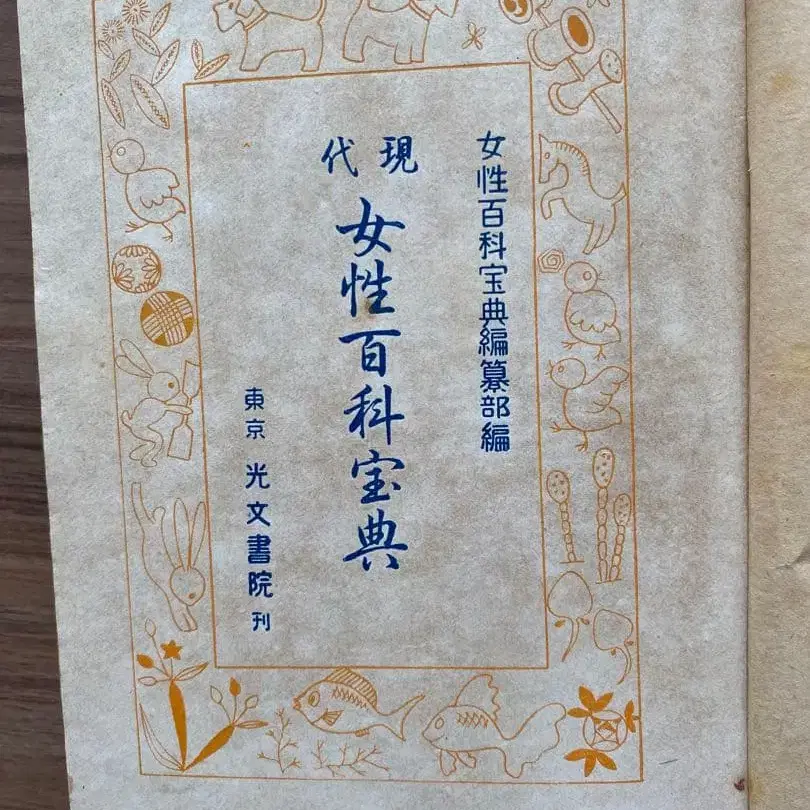 女性百科宝典編纂部編
現代
女性百科宝典
東京 光文書院 刊